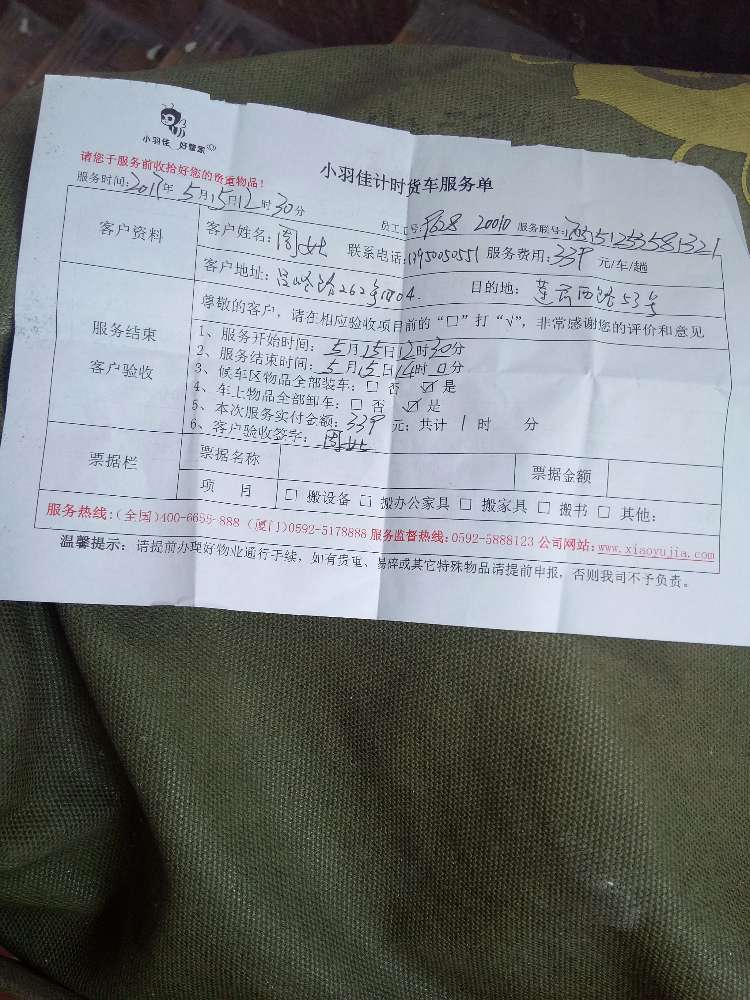 小羽佳 好管家
请您于服务前收拾好您的贵重物品！
小羽佳计时货车服务单
服务时间：2017年5月15日12时30分
员工工号：9628 20010 服务联号：
客户资料
客户姓名：周 联系电话：13950050551 服务费用：339元/车/趟
客户地址：262号1004. 目的地：莲云西路53号
服务结束
客户验收
尊敬的客户，请在相应验收项目前的“□”打“√”，非常感谢您的评价和意见
1、服务开始时间：5月15日12时30分
2、服务结束时间：5月15日14时0分
3、候车区物品全部装车：□ 否 ☑ 是
4、车上物品全部卸车：□ 否 ☑ 是
5、本次服务实付金额：339元；共计1时 分
6、客户验收签字：周
票据栏
票据名称
票据金额
项 目
□ 搬设备 □ 搬办公家具 □ 搬家具 □ 搬书 □ 其他：
服务热线：(全国)400-6655-888 (厦门)0592-5178888 服务监督热线：0592-5888123 公司网站：www.xiaoyujia.com
温馨提示：请提前办理好物业通行手续，如有贵重、易碎或其它特殊物品请提前申报，否则我司不予负责。